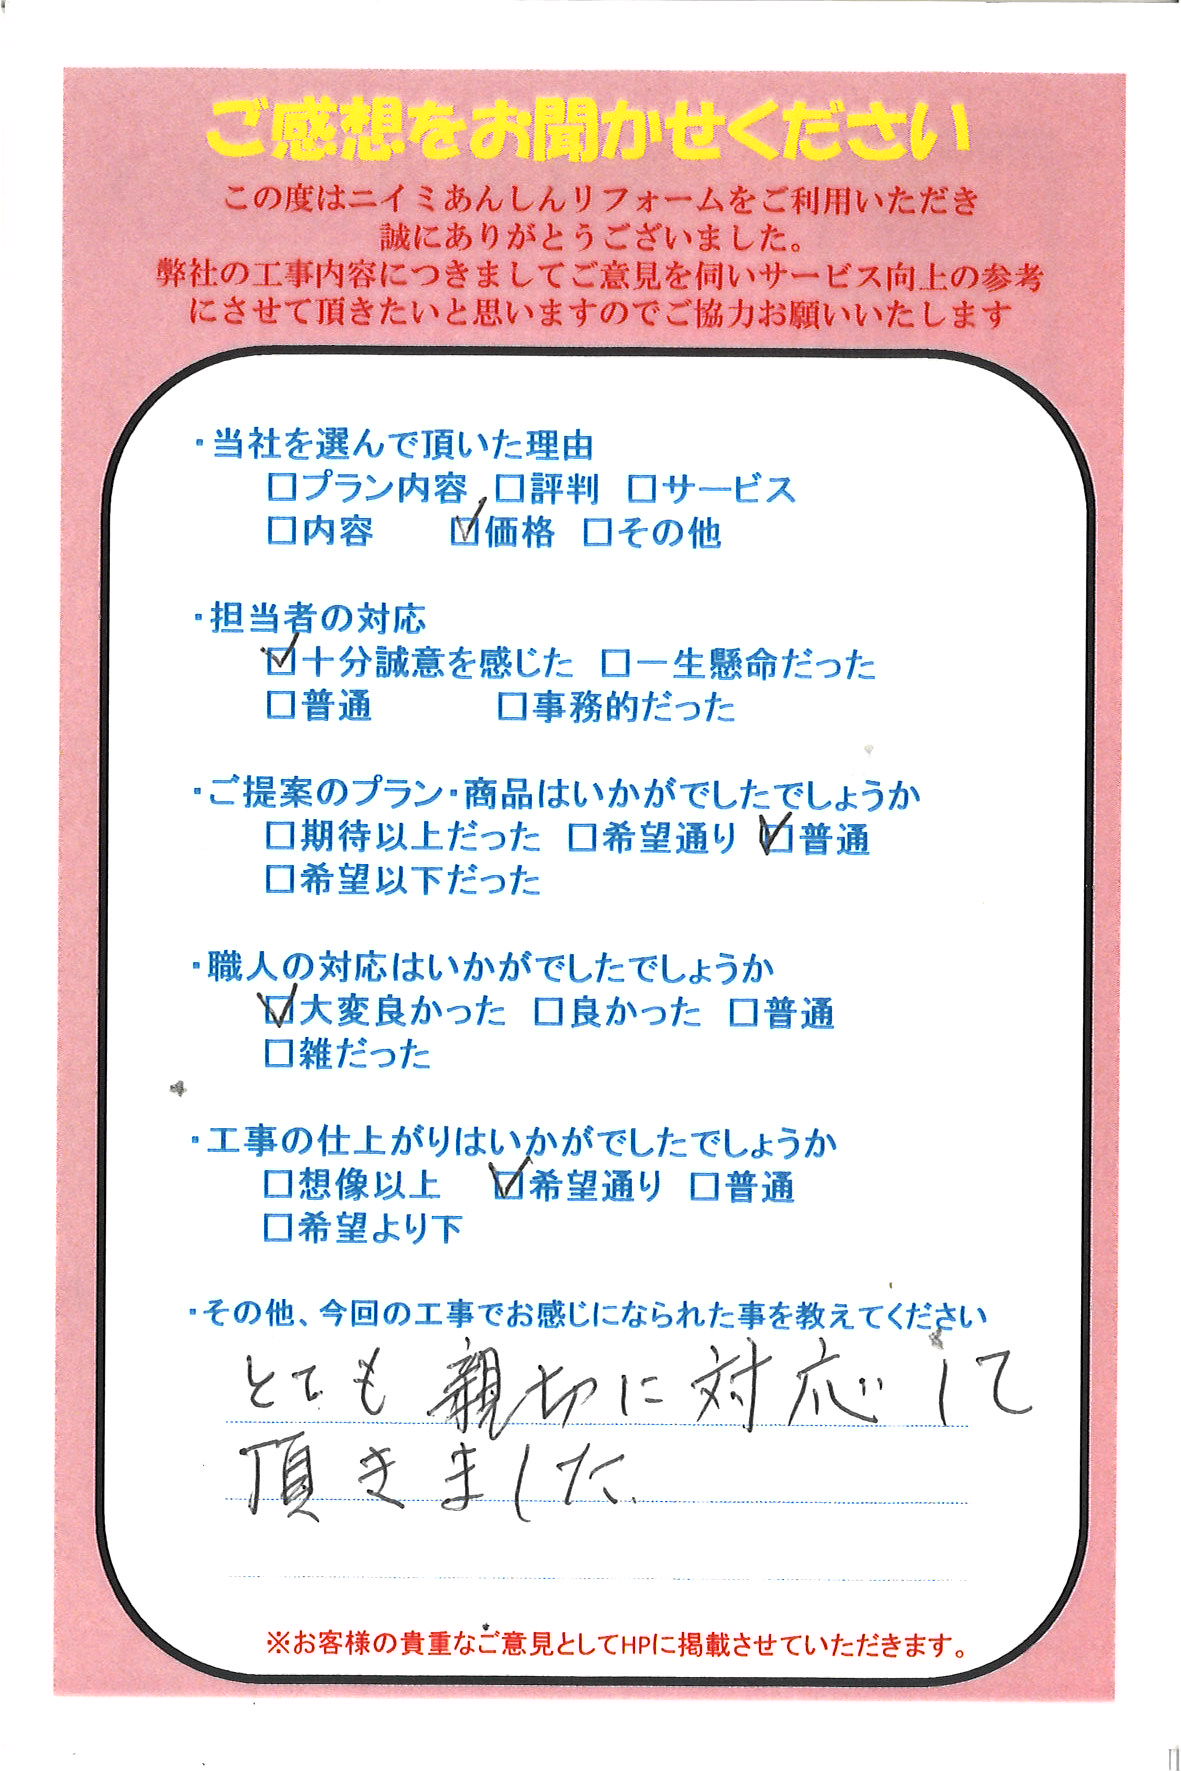 ご感想をお聞かせください
この度はニイミあんしんリフォームをご利用いただき
誠にありがとうございました。
弊社の工事内容につきましてご意見を伺いサービス向上の参考
にさせて頂きたいと思いますのでご協力お願いいたします
・当社を選んで頂いた理由
□プラン内容 □評判 □サービス
□内容 ☑価格 □その他
・担当者の対応
☑十分誠意を感じた □一生懸命だった
□普通 □事務的だった
・ご提案のプラン・商品はいかがでしたでしょうか
□期待以上だった □希望通り ☑普通
□希望以下だった
・職人の対応はいかがでしたでしょうか
☑大変良かった □良かった □普通
□雑だった
・工事の仕上がりはいかがでしたでしょうか
□想像以上 ☑希望通り □普通
□希望より下
・その他、今回の工事でお感じになられた事を教えてください
とても親切に対応して
頂きました
※お客様の貴重なご意見としてHPに掲載させていただきます。